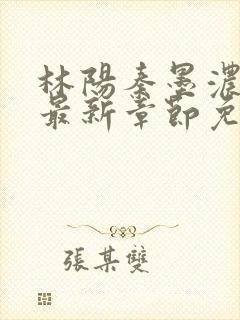 林陽秦墨濃
最新章節免
張某雙